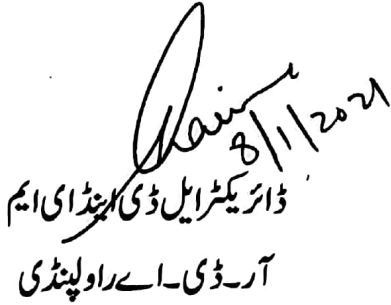 8/1/2021
ڈائریکٹر ایل ڈی اینڈ ای ایم
آر۔ڈی۔اے راولپنڈی